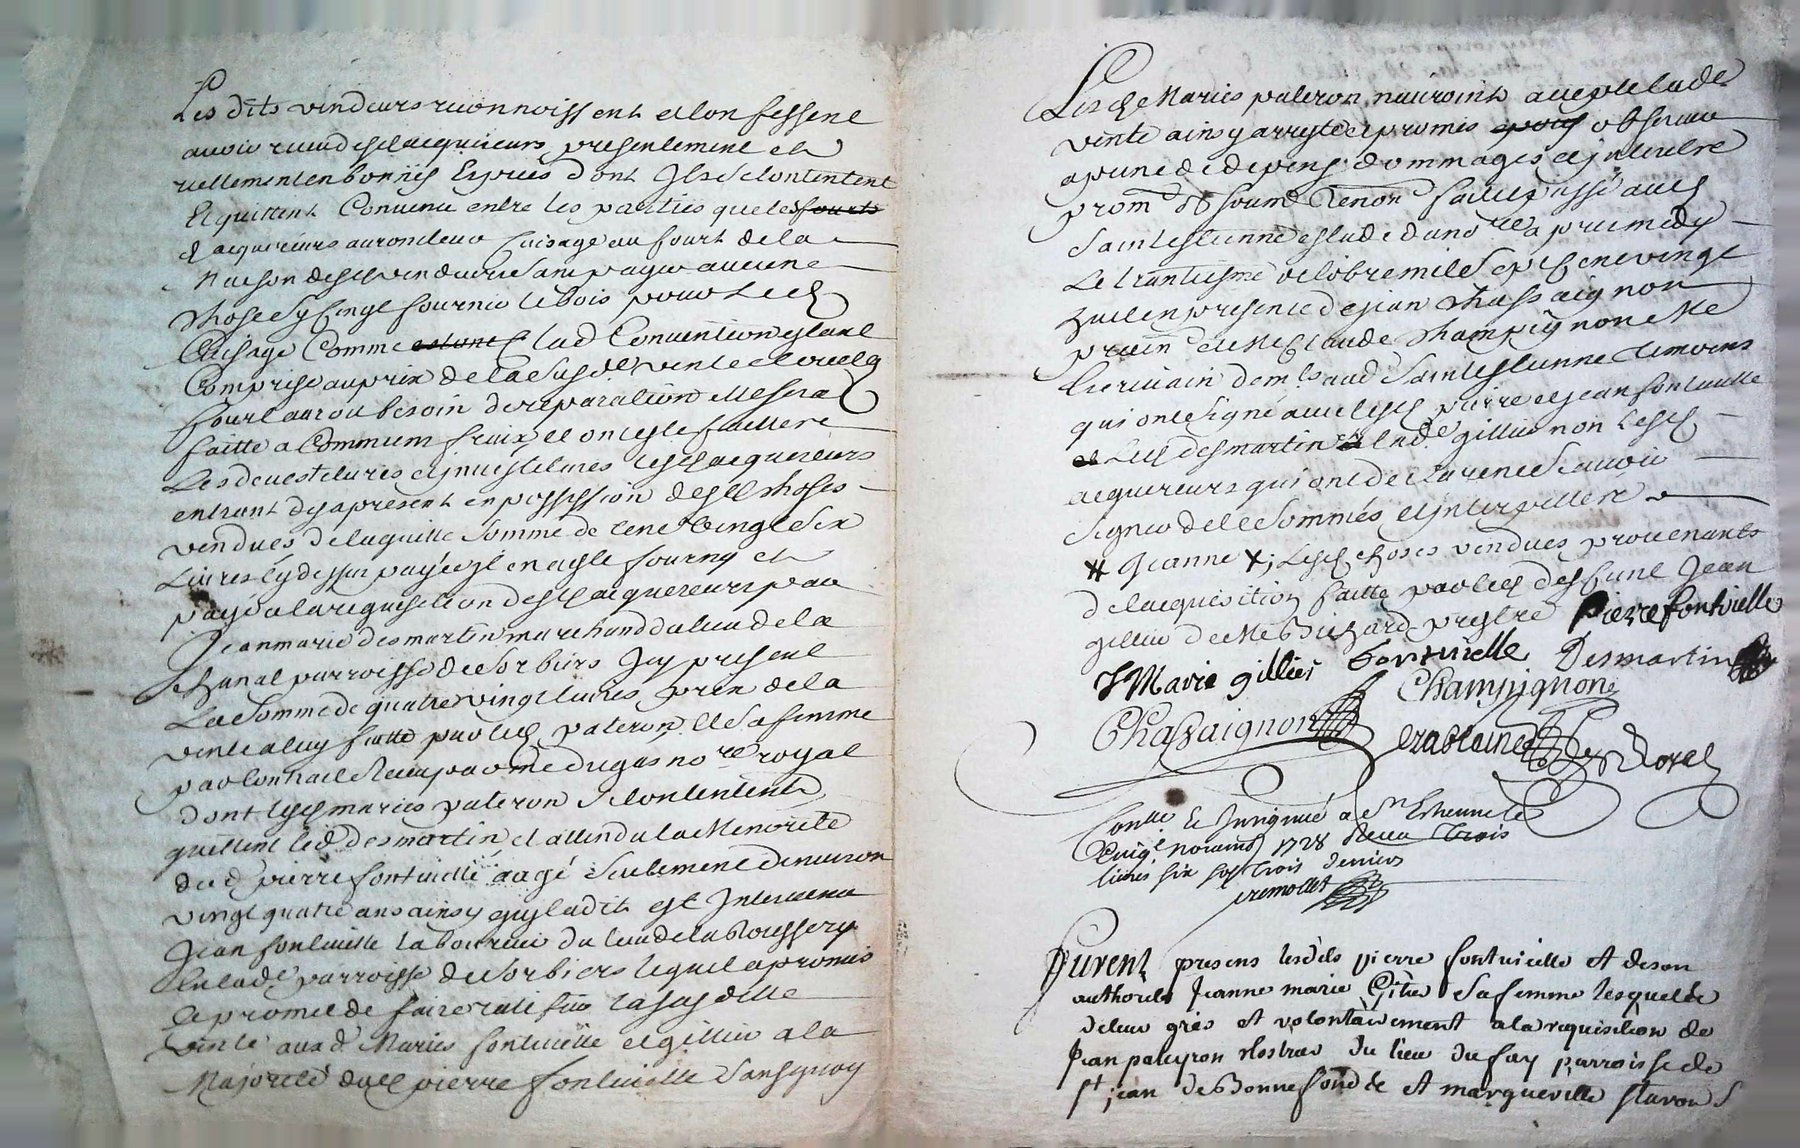 Les dits vendeurs reconnoissent et confessent
avoir receu desd acquereurs presentement et
reellement en bonnes Espèces dont Ils se contentent
Et quittent Convenu entre les parties que lesd fourts
d acquereurs auront leur Cuisage au fourt de la
Maison desd vendeurs sans payer aucune
chose Sy fingt fournir le bois pour led
Cuisage Comme estant lad Convention estant
Comprise au prix de la Susde vente et ou led
fourt auroit besoin de reparation elle sera
faitte a Commum fraix et ont este faitte
Les devestetures et jnvestetures lesd acquereurs
entrant des apresent en possession desd choses
vendues de laquelle Somme de Cent Vingt Six
Livres Cy dessus payée jl en a esté fourny et
payé a la requisition desd acquereurs par
Jean marie desmartin marchand du lieu de la
chanal parroisse de Sorbiers Jcy present
La Somme de quatre vingt livres prix de la
vente a luy faitte par led pateron et Sa femme
par Contract Receu par me dugas nore royal
dont lesd mariés pateron Se contentent
quittent led desmartin et attendu la Menorité
dud pierre fontvielle aagé Seulement denviron
vingt quatre ans ainsy quil a dit est Intervenu
Jean fontvielle laboureur du lieu de la Roussery
en lade parroisse de Sorbiers lequel a promis
et promet de faire ratiffier la susditte
vente aux d Mariés fontvielle et gillier a la
Majorité dud pierre fontvielle Sans quoy
Lesd Mariés pateron nauroint accepté lade
vente ainsy arresté et promis observer
a peine de depens dommages et jnterest
prom ob soum Renon fait et passé aud
Saint estienne estude du nore a pres midy
Le trantiesme octobre mil Sept Cent vingt
huit en presence de jean Chassaignon
pratn et Me Claude Champignon Me
Ecrivain dem ts aud Saint estienne temoins
qui ont signé avec lesd pierre et jean fontvielle
et Led desmartin et lade gillier non lesd
acquereurs qui ont declaré ne Scavoir
Signer de ce Sommés et jnterpellés
# Jeanne X; Lesd choses vendues provenants
de lacquisition faitte par led deffunt Jean
gillier de Me Richard prestre Pierre fontvielle
J Marie gillier fontvielle Desmartin
Champignon
Chasaignon
Conllé et Insignué a St Estienne le
Cinq novembre 1728 Receu Trois
livres six sols Trois deniers
Furent presens lesdits pierre fontvielle et de son
authorité Jeanne marie Gillier Sa femme lesquels de
deleur grés et volontairement a la requisition de
Jean pateyron du lieu du fay parroisse de
St jean de Bonnefond et